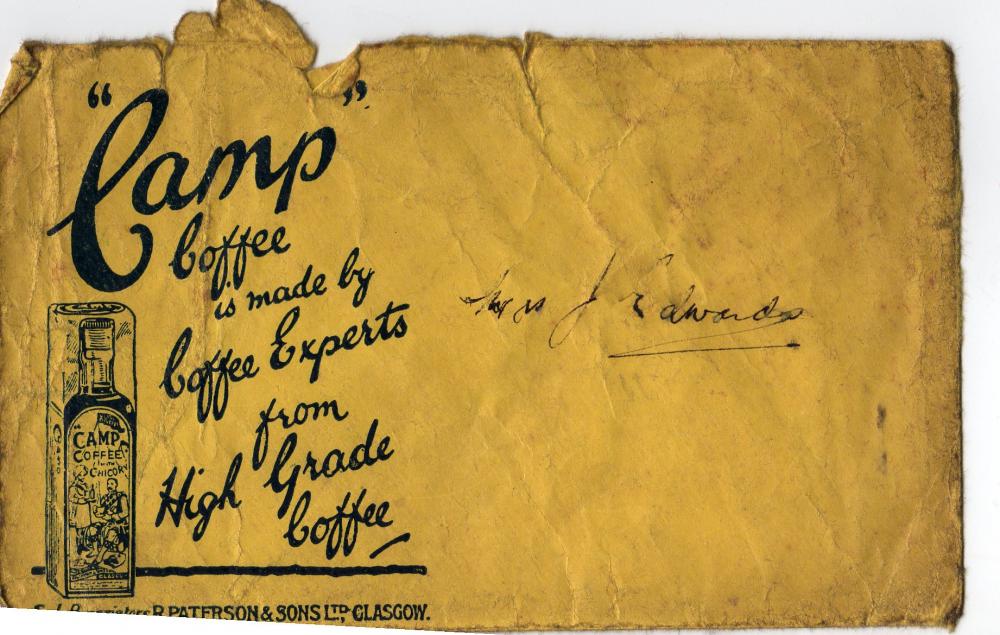 "Camp"
Coffee
is made by
Coffee Experts
from
High Grade
Coffee
CAMP
COFFEE
CHICORY
R. PATERSON & SONS LTD, GLASGOW.
Mrs J Edwards